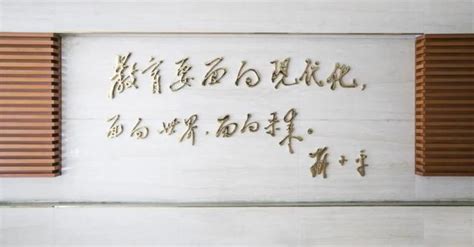 教育要面向现代化，
面向世界，面向未来。
邓小平